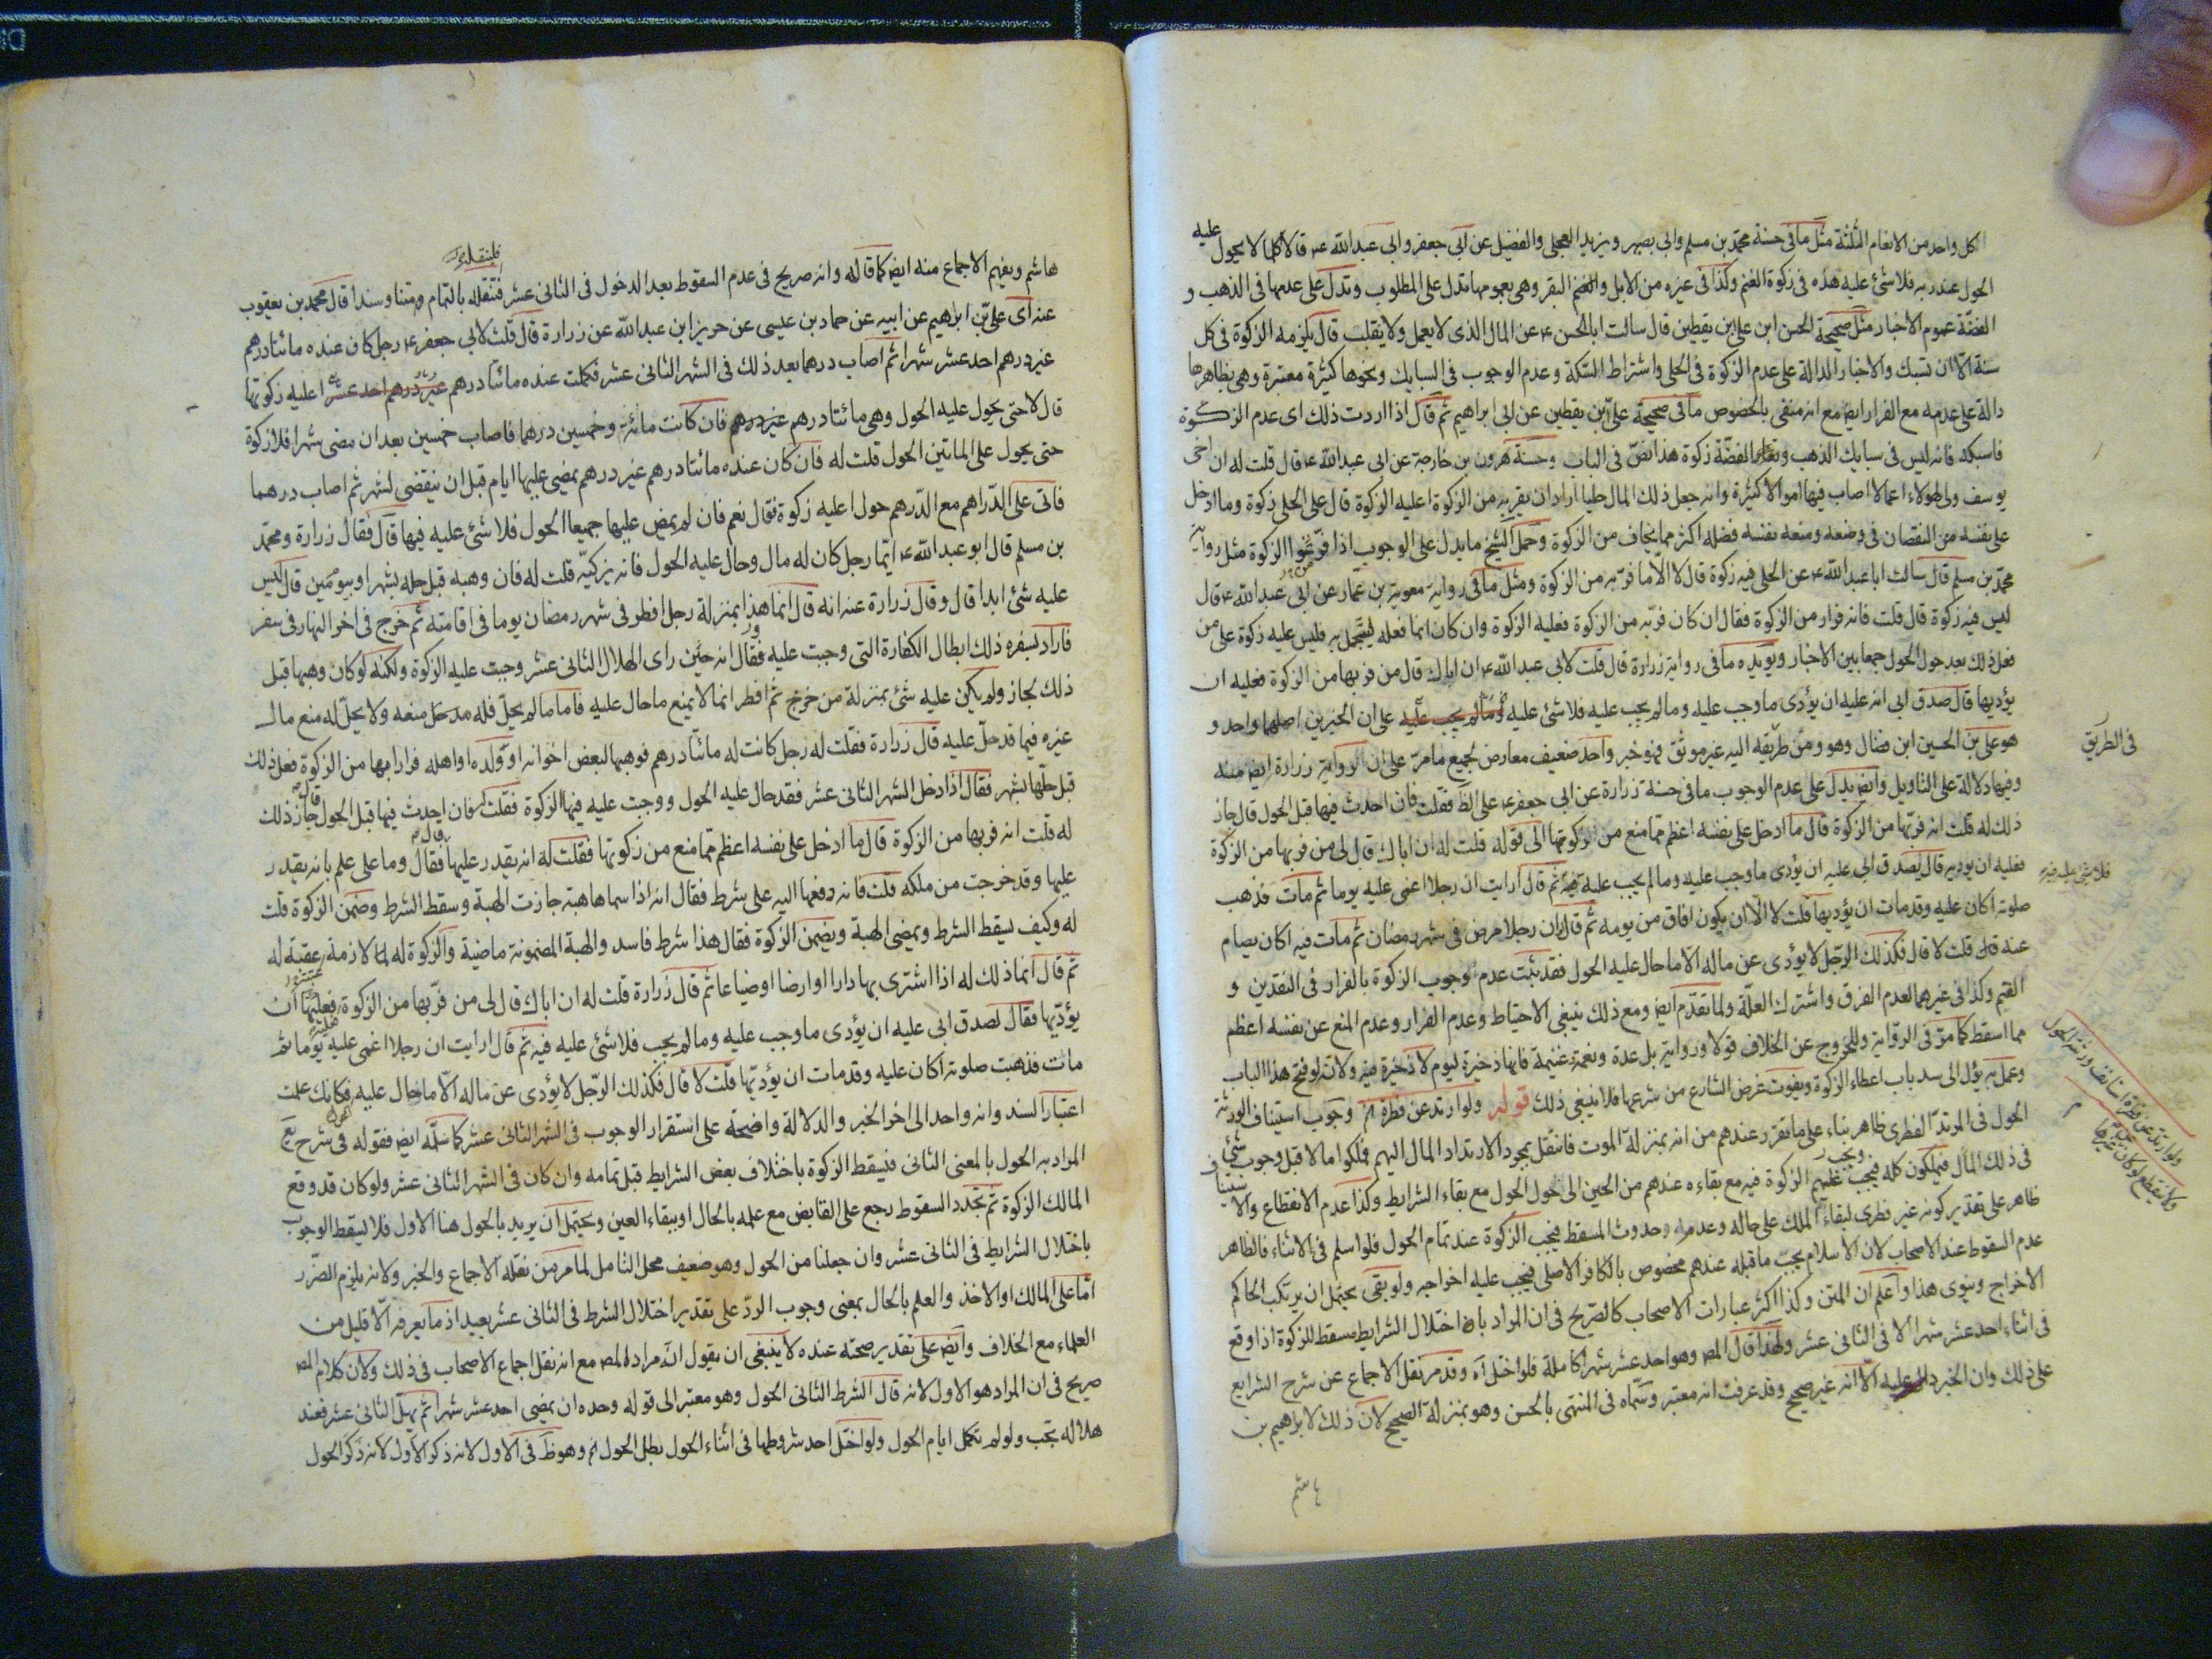 كل واحد من الانعام الثلثة مثل ما فى حسنة محمد بن مسلم وابى بصير وبزيد العجلى والفضيل عن ابى جعفر وابى عبدالله ع قالا كلما لا يحول عليه
الحول عند ربه فلا شئ عليه هذه فى زكوة الغنم وكذا فى غيره من الابل والغنم البقر وهى بعمومها تدل على المطلوب وتدل على عدمها فى الذهب و
الفضة عموم الاخبار مثل صحيحة الحسن ابن على ابن يقطين قال سالت ابا الحسن ع عن المال الذى لا يعمل ولا يقلب قال يلزمه الزكوة فى كل
سنة الا ان تسبك والاخبار الدالة على عدم الزكوة فى الحلى واشتراط السكة وعدم الوجوب فى السبايك ونحوها كثيرة معتبرة وهى بظاهرها
دالة على عدمه مع الفرار ايض مع انه منفى بالخصوص ما فى صحيحة على بن يقطين عن ابى ابراهيم ثم قال اذا اردت ذلك اى عدم الزكوة
فاسبكه فانه ليس فى سبايك الذهب ونقار الفضة زكوة هذا نص فى الباب وحسنة هرون بن خارجة عن ابى عبدالله ع قال قلت له ان اخى
يوسف ولى لهولاء اعمالا اصاب فيها اموالا كثيرة وانه جعل ذلك المال حليا اراد ان يفر به من الزكوة اعليه الزكوة قال على الحلى زكوة وما ادخل
على نفسه من النقصان فى وضعه ومنعه نفسه فضله اكثر مما يخاف من الزكوة وحمل الشيخ ما يدل على الوجوب اذا فر الزكوة مثل رواية
محمد بن مسلم قال سالت ابا عبدالله ع عن الحلى فيه زكوة قال لا الا ما فر به من الزكوة ومثل ما فى رواية معوية بن عمار عن ابى عبدالله ع قال
ليس فيه زكوة قال قلت فانه فرار من الزكوة فقال ان كان فر به من الزكوة فعليه الزكوة وان كان انما فعله ليتجمل به فليس عليه زكوة على من
فعل ذلك بعد حول الحول جمعا بين الاخبار ويؤيده ما فى رواية زرارة قال قلت لابى عبدالله ع ان اباك قال من فر بها من الزكوة فعليه ان
يؤديها قال صدق ابى انه عليه ان يؤدى ما وجب عليه وما لم يجب عليه فلا شئ عليه على ان الخبرين اصلهما واحد و
هو على بن الحسين ابن فضال وهو ومن طريقه اليه غير موثق فهو خبر واحد ضعيف معارض لجميع ما مر على ان الرواية زرارة ايض منه
فى الطريق
وفيها دلالة على التاويل وايض يدل على عدم الوجوب ما فى حسنة زرارة عن ابى جعفر ع على الظ فقلت فان احدث فيها قبل الحول قال جاز
ذلك له قلت انه فر بها من الزكوة قال ما ادخل على نفسه اعظم مما منع من الزكوتها الى قوله قلت له ان اباك قال لى من فر بها من الزكوة
فعليه ان يوديها قال صدق ابى عليه ان يؤدى ما وجب عليه وما لم يجب عليه ثم قال ارايت ان رجلا اغمى عليه يوما ثم مات فذهب
فلا شئ عليه فيه
صلوته اكان عليه وقد مات ان يؤديها قلت لا الا ان يكون افاق من يومه ثم قال ان رجلا مرض فى شهر رمضان ثم مات فيه اكان يصام
عنه قلت لا قال فكذلك الرجل لا يؤدى عن ماله الا ما حال عليه الحول فقد ثبت عدم وجوب الزكوة بالفرار فى النقدين و
الغنم وكذا فى غيرهما لعدم الفرق واشتراك العلة ولما تقدم ايض ومع ذلك ينبغى الاحتياط وعدم الفرار وعدم المنع عن نفسه اعظم
مما اسقط كما مر فى الرواية وللخروج عن الخلاف قولا ورواية بل عدة ونعمة غنيمة فانها ذخيرة ليوم لا ذخيرة فيه ولانه لو فتح هذا الباب
وعمل به يؤل الى سد باب اعطاء الزكوة ويفوت غرض الشارع من شرعها فلا ينبغى ذلك قوله ولو ارتد عن فطرة وجوب استيناف الورثة
ولو ارتد عن فطرة استانف ورثته الحول
ولا ينقطع لو كان عن غيرها
الحول فى المرتد الفطرى ظاهر بناء على ما تقرر عندهم من انه بمنزلة الموت فانتقل بمجرد الارتداد المال اليهم فملكوا مالا قبل وجوب شئ
فى ذلك المال فيملكون كله فيجب عليهم الزكوة فيه مع بقاءه عندهم من الحين الى حول الحول مع بقاء الشرايط وكذا عدم الانقطاع والاستيناف
ظاهر على تقدير كونه غير فطرى لبقاء الملك على حاله وعدمه وحدوث المسقط فيجب الزكوة عند تمام الحول فلو اسلم فى الاثناء فالظاهر
عدم السقوط عند الاصحاب لان الاسلام يجب ما قبله عندهم مخصوص بالكافر الاصلى فيجب عليه اخراجه ولو بقى يحتمل ان يرتكب الحاكم
الاخراج وينوى هذا واعلم ان المتن وكذا اكثر عبارات الاصحاب كالصريح فى ان المراد بان اختلال الشرايط مسقط للزكوة اذا وقع
فى اثناء احد عشر شهرا لا فى الثانى عشر ولهذا قال المص وهو احد عشر شهرا كاملة فلو اختل اه وقد مر نقل الاجماع عن شرح الشرايع
على ذلك وان الخبر دال عليه الا انه غير صحيح وقد عرفت انه معتبر وسماه فى المنتهى بالحسن وهو بمنزلة الصحيح لان ذلك لابراهيم بن
هاشم
هاشم ويفهم الاجماع منه ايض كما قاله وانه صريح فى عدم السقوط بعد الدخول فى الثانى عشر فتنقله بالتمام متنا وسندا قال محمد بن يعقوب
فلننقله
عنه اى على بن ابرهيم عن ابيه عن حماد بن عيسى عن حريز ابن عبدالله عن زرارة قال قلت لابى جعفر ع رجل كان عنده مائتا درهم
غير درهم احد عشر شهرا ثم اصاب درهما بعد ذلك فى الشهر الثانى عشر فكملت عنده مائتا درهم غير درهم احد عشر ا عليه زكوتها
قال لا حتى يحول عليه الحول وهى مائتا درهم غير درهم فان كانت مائة وخمسين درهما فاصاب خمسين بعد ان مضى شهرا فلا زكوة
حتى يحول على الماتين الحول قلت له فان كان عنده مائتا درهم غير درهم يمضى عليها ايام قبل ان ينقضى لشهر ثم اصاب درهما
فاتى على الدراهم مع الدرهم حول اعليه زكوة فقال نعم فان لم يمض عليها جميعا الحول فلا شئ عليه فيها قال فقال زرارة ومحمد
بن مسلم قال ابو عبدالله ع ايما رجل كان له مال وحال عليه الحول فانه يزكيه قلت له فان وهبه قبل حله بشهر او بيومين قال ليس
عليه شئ ابدا قال وقال زرارة عنه انه قال انما هذا بمنزلة رجل افطر فى شهر رمضان يوما فى اقامته ثم خرج فى اخر النهار فى سفر
فاراد بسفره ذلك ابطال الكفارة التى وجبت عليه فقال انه حين راى الهلال الثانى عشر وجبت عليه الزكوة ولكنه لو كان وهبها قبل
ذلك لجاز ولم يكن عليه شئ بمنزلة من خرج ثم افطر انما لا يمنع ما حال عليه فاما ما لم يحل فله منعه ولا يحل له منع مال
غيره فيما قد حل عليه قال زرارة فقلت له رجل كانت له مائتا درهم فوهبها لبعض اخوانه او ولده او اهله فرارا بها من الزكوة فعل ذلك
قبل حلها بشهر فقال اذا دخل الشهر الثانى عشر فقد حال عليه الحول ووجبت عليه فيها الزكوة فقلت له فان احدث فيها قبل الحول قال جاز ذلك
له قلت انه فر بها من الزكوة قال ما ادخل على نفسه اعظم مما منع من زكوتها فقلت له انه يقدر عليها فقال وما على علم بانه يقدر
عليها وقد خرجت من ملكه قلت فانه دفعها اليه على شرط فقال انه اذا سماها هبة جازت الهبة وسقط الشرط وضمن الزكوة قلت
له وكيف يسقط الشرط ويمضى الهبة ويضمن الزكوة فقال هذا شرط فاسد والهبة المضمونة ماضية والزكوة له لازمة عقوبة له
ثم قال انما ذلك له اذا اشترى بها دارا او ارضا او ضياعا ثم قال زرارة قلت له ان اباك قال لى من فر بها من الزكوة فعليه ان
يؤديها فقال صدق ابى عليه ان يؤدى ما وجب عليه وما لم يجب فلا شئ عليه فيه ثم قال ارأيت ان رجلا اغمى عليه يوما ثم
مات فذهبت صلوته اكان عليه وقد مات ان يؤديها قلت لا قال فكذلك الرجل لا يؤدى عن ماله الا ما حال عليه فكانك علمت
اعتبار السند وانه واحد الى اخر الخبر والدلالة واضحة على استقرار الوجوب فى الشهر الثانى عشر كما سلمه ايض فقوله فى شرح يع
المراد به الحول بالمعنى الثانى فيسقط الزكوة باختلاف بعض الشرايط قبل تمامه وان كان فى الشهر الثانى عشر ولو كان قد وقع
المالك الزكوة ثم تجدد السقوط رجع على القابض مع علمه بالحال او ببقاء العين ويحتمل ان يريد بالحول هنا الاول فلا يسقط الوجوب
باختلال الشرايط فى الثانى عشر وان جعلنا من الحول وهو ضعيف محل التامل لما مر من نقله الاجماع والخبر ولانه يلزم الضرر
اما على المالك او الاخذ والعلم بالحال بمعنى وجوب الرد على تقدير اختلال الشرط فى الثانى عشر بعيد اذ ما يعرفه الا قليل من
العلماء مع الخلاف وايض على تقدير صحته عنده لا ينبغى ان يقول انه مراد المص مع انه نقل اجماع الاصحاب فى ذلك ولان كلام المص
صريح فى ان المراد هو الاول لانه قال الشرط الثانى الحول وهو معتبر الى قوله وحده ان يمضى احد عشر شهرا ثم يهل الثانى عشر فعند
هلاله يجب ولو لم تكمل ايام الحول ولو اختل احد شروطها فى اثناء الحول بطل الحول اه وهو ظ فى الاول لانه ذكر الاول لانه ذكر الحول